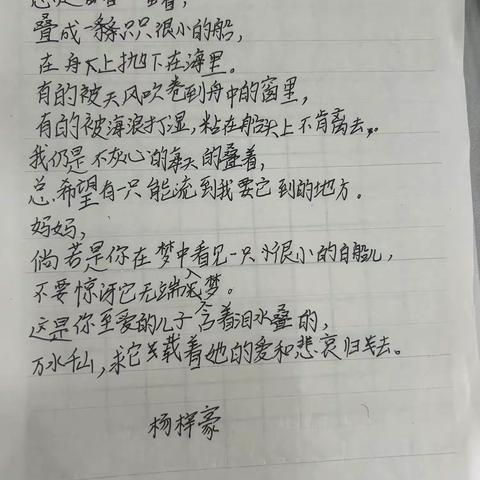 叠成一只只很小的船,
在舟上抛下在海里。
有的被天风吹卷到舟中的窗里,
有的被海浪打湿,粘在船头上不肯离去。
我仍是不灰心的每天的叠着,
总希望有一只能流到我要它到的地方。
妈妈,
倘若是你在梦中看见一只很小的白船儿,
不要惊讶它无端入梦。
这是你至爱的儿子含着泪水叠的,
万水千山,求它载着她的爱和悲哀归去。
杨梓豪